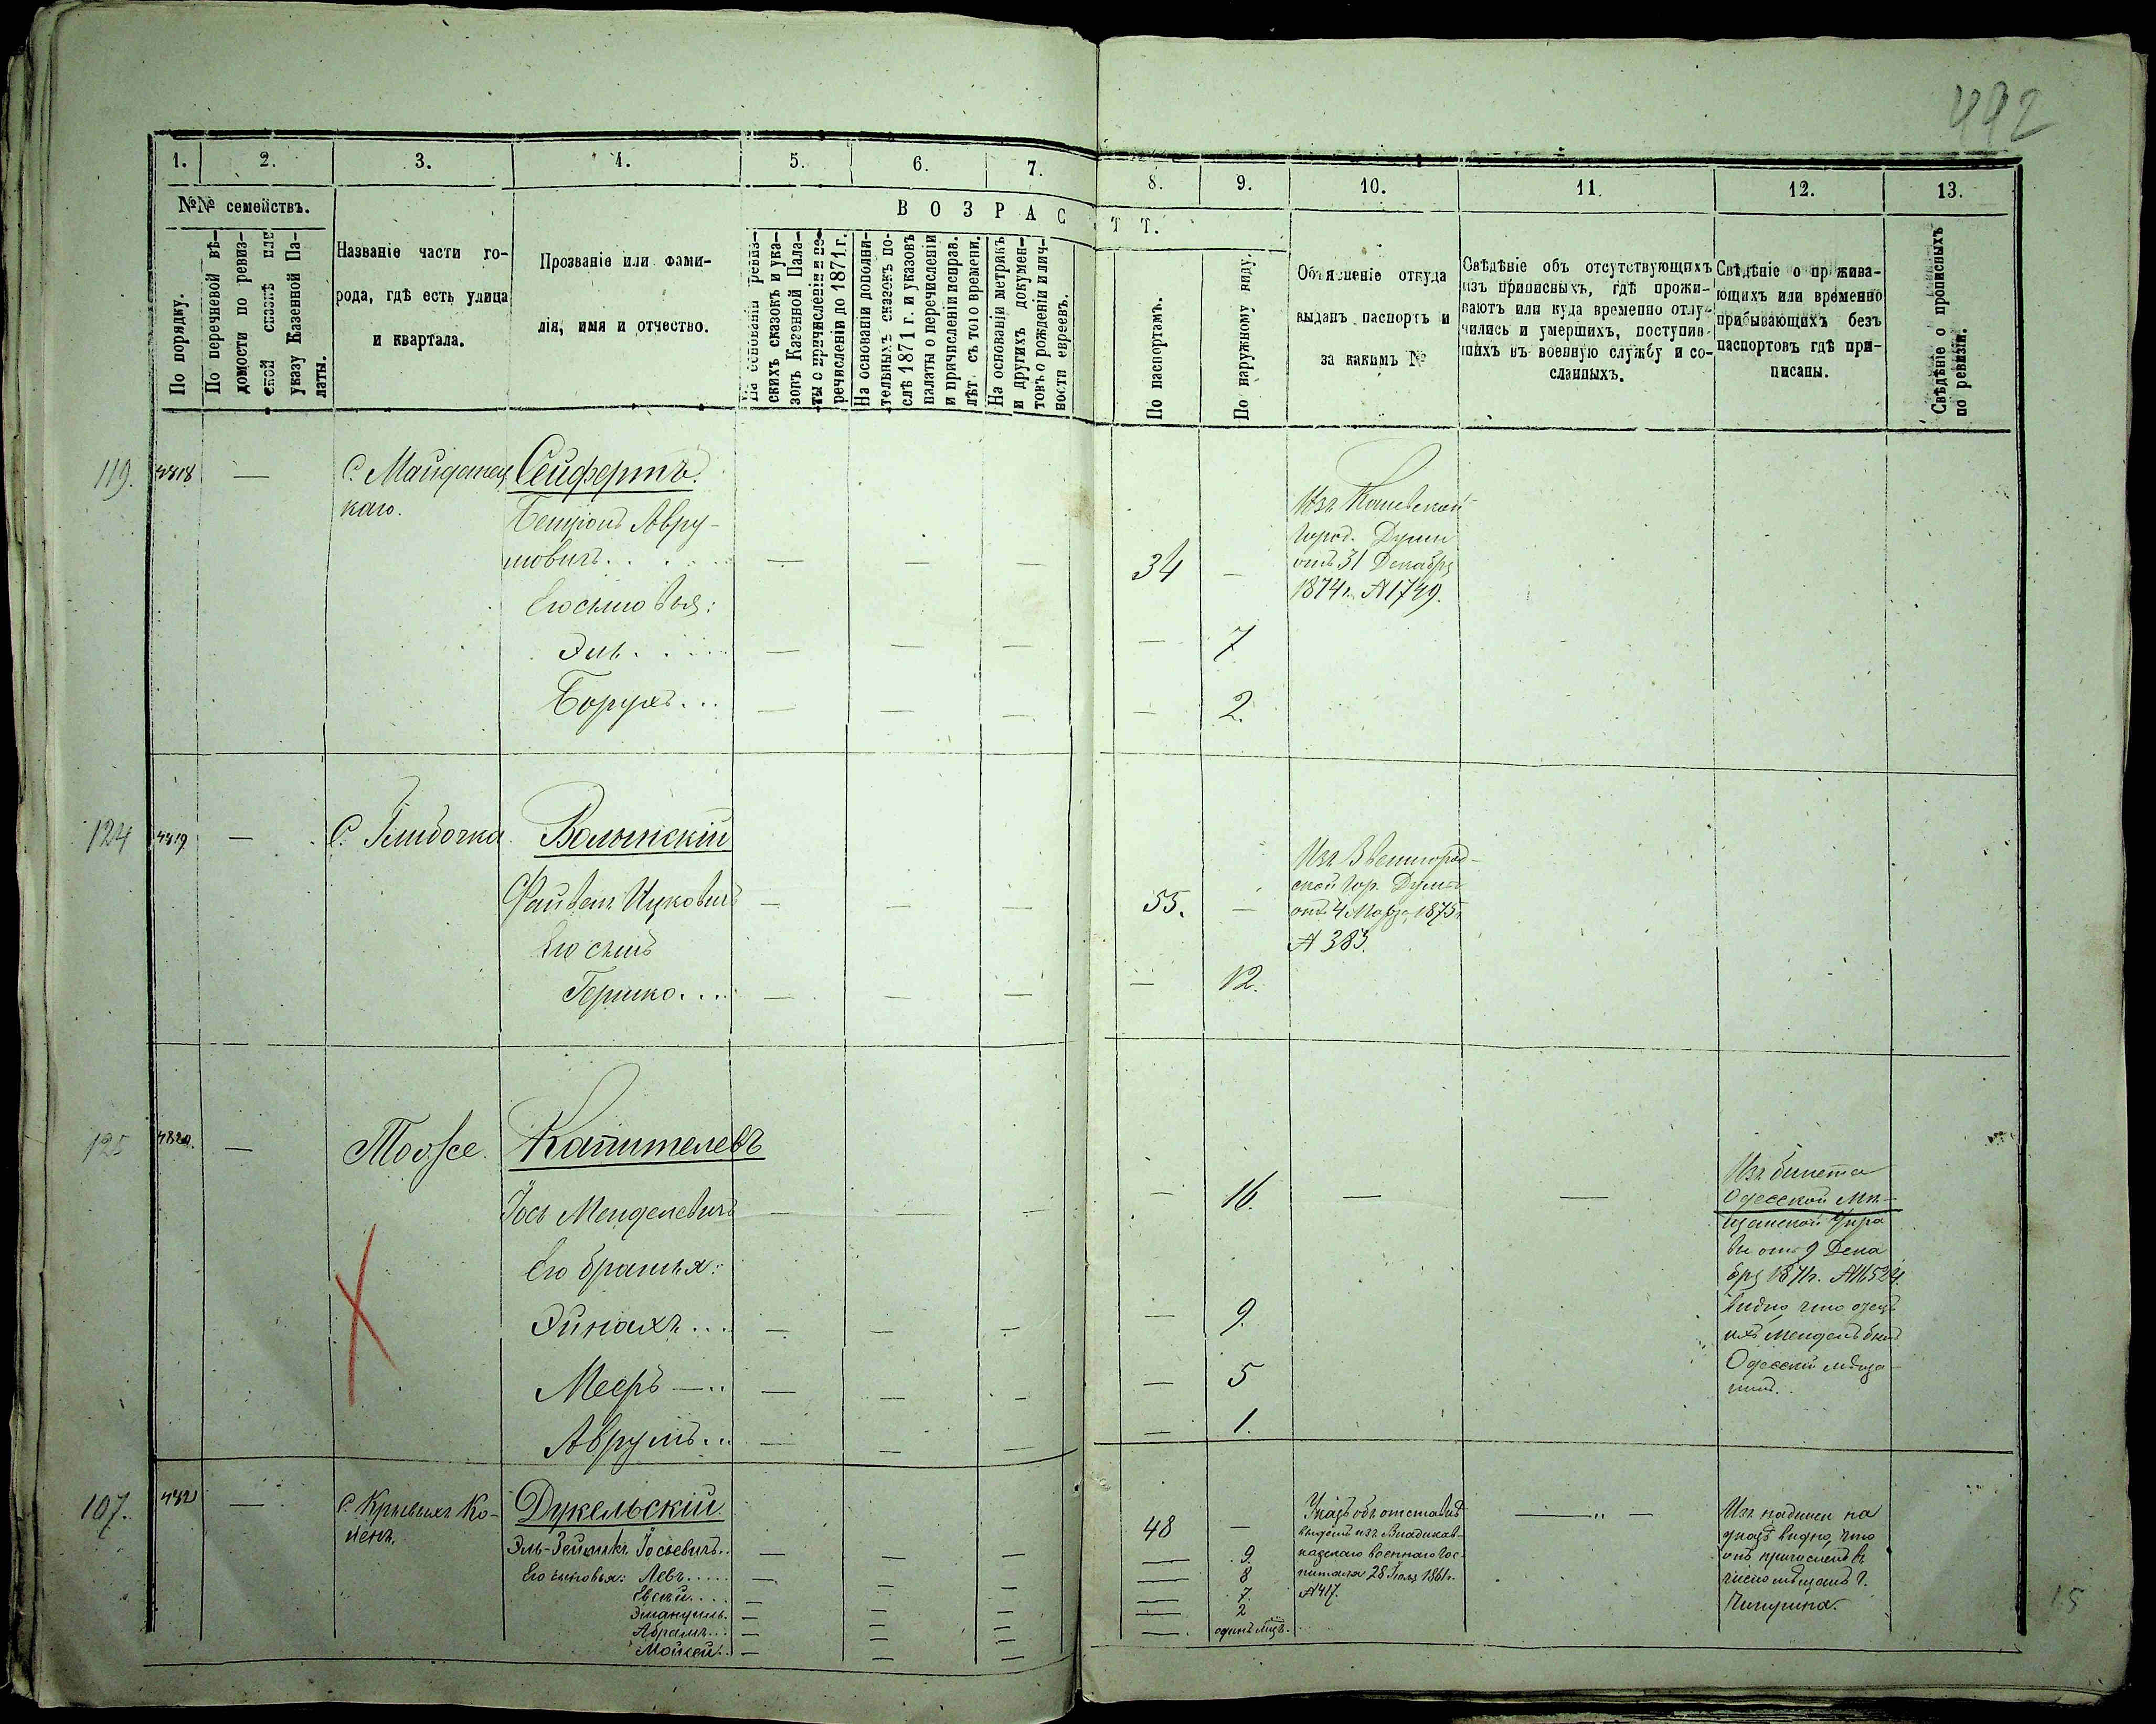 492
1. 2. 3. 4. 5. 6. 7. 8. 9. 10. 11. 12. 13.
№№ семействъ.
По порядку.
По перечневой вѣ-
домости по ревиз-
ской сказкѣ или
указу Казенной Па-
латы.
Названіе части го-
рода, гдѣ есть улица
и квартала.
Прозваніе или фами-
лія, имя и отчество.
ВОЗРАСТТ.
На основаніи ревиз-
скихъ сказокъ и ука-
зовъ Казенной Пала-
ты о причисленіи и пе-
речисленіи до 1871 г.
На основаніи дополни-
тельныхъ сказокъ по-
слѣ 1871 г. и указовъ
палаты о перечисленіи
и причисленіи исправ.
лѣт съ того времени.
На основаніи метрикъ
и другихъ докумен-
товъ о рожденіи и лич-
ности евреевъ.
По паспортамъ.
По наружному виду.
Объясненіе откуда
выданъ паспортъ и
за какимъ №
Свѣдѣніе объ отсутствующихъ
изъ приписныхъ, гдѣ прожи-
ваютъ или куда временно отлу-
чились и умершихъ, поступив-
шихъ въ военную службу и со-
сланныхъ.
Свѣдѣніе о прожива-
ющихъ или временно
прибывающихъ безъ
паспортовъ гдѣ при-
писаны.
Свѣдѣніе о прописныхъ
по ревизіи.
119. 4818 — С. Майданец
каго.
Сейфертъ.
Бенціонъ Авру-
мовичъ. . . — — — 34 —
Изъ Каневской
Город. Думы
отъ 31 Декабря
1874г. №1749.
Его сыновья:
Эль. . . — — — — 7
Борухъ. . . — — — — 2.
124 4819 — С. Глибочка
Волынскій
Файвель Ицковичъ — — — 55. —
Изъ Звенигород-
ской Гор. Думы
отъ 4 Марта 1875г.
№ 383.
Его сынъ
Гершко. . . — — — — 12.
125 4820. — Тоже.
Капителевъ
Іось Менделевичъ — — — — 16. — —
Изъ билета
Одесской Мѣ-
щанской Упра
вы отъ 9 Дека
бря 1871г. №16524
видно что отецъ
ихъ Мендель былъ
Одесскій мѣща
нинъ.
Его братья:
Эйнахъ. . . — — — — 9.
Мееръ — . . — — — — 5
Аврумъ . . — — — — 1.
107. 4821 — С. Кривыхъ Ко-
лѣнъ.
Дукельскій.
Эль-Зейликъ Іосьевичъ . . — — — 48 —
Указъ объ отставкѣ
выданъ изъ Владикав-
казскаго военнаго Гос-
питаля 28 Іюля 1861г.
№417.
— „ —
Изъ надписи на
указѣ видно, что
онъ причисленъ въ
число мѣщанъ г.
Чигирина.
Его сыновья: Левъ. . . . — — — — 9.
Евсѣй. . . . — — — — 8
Эмануилъ. — — — — 7.
Абрамъ. . . — — — — 2
Мойсей. . — — — — одинъ мѣс.
15